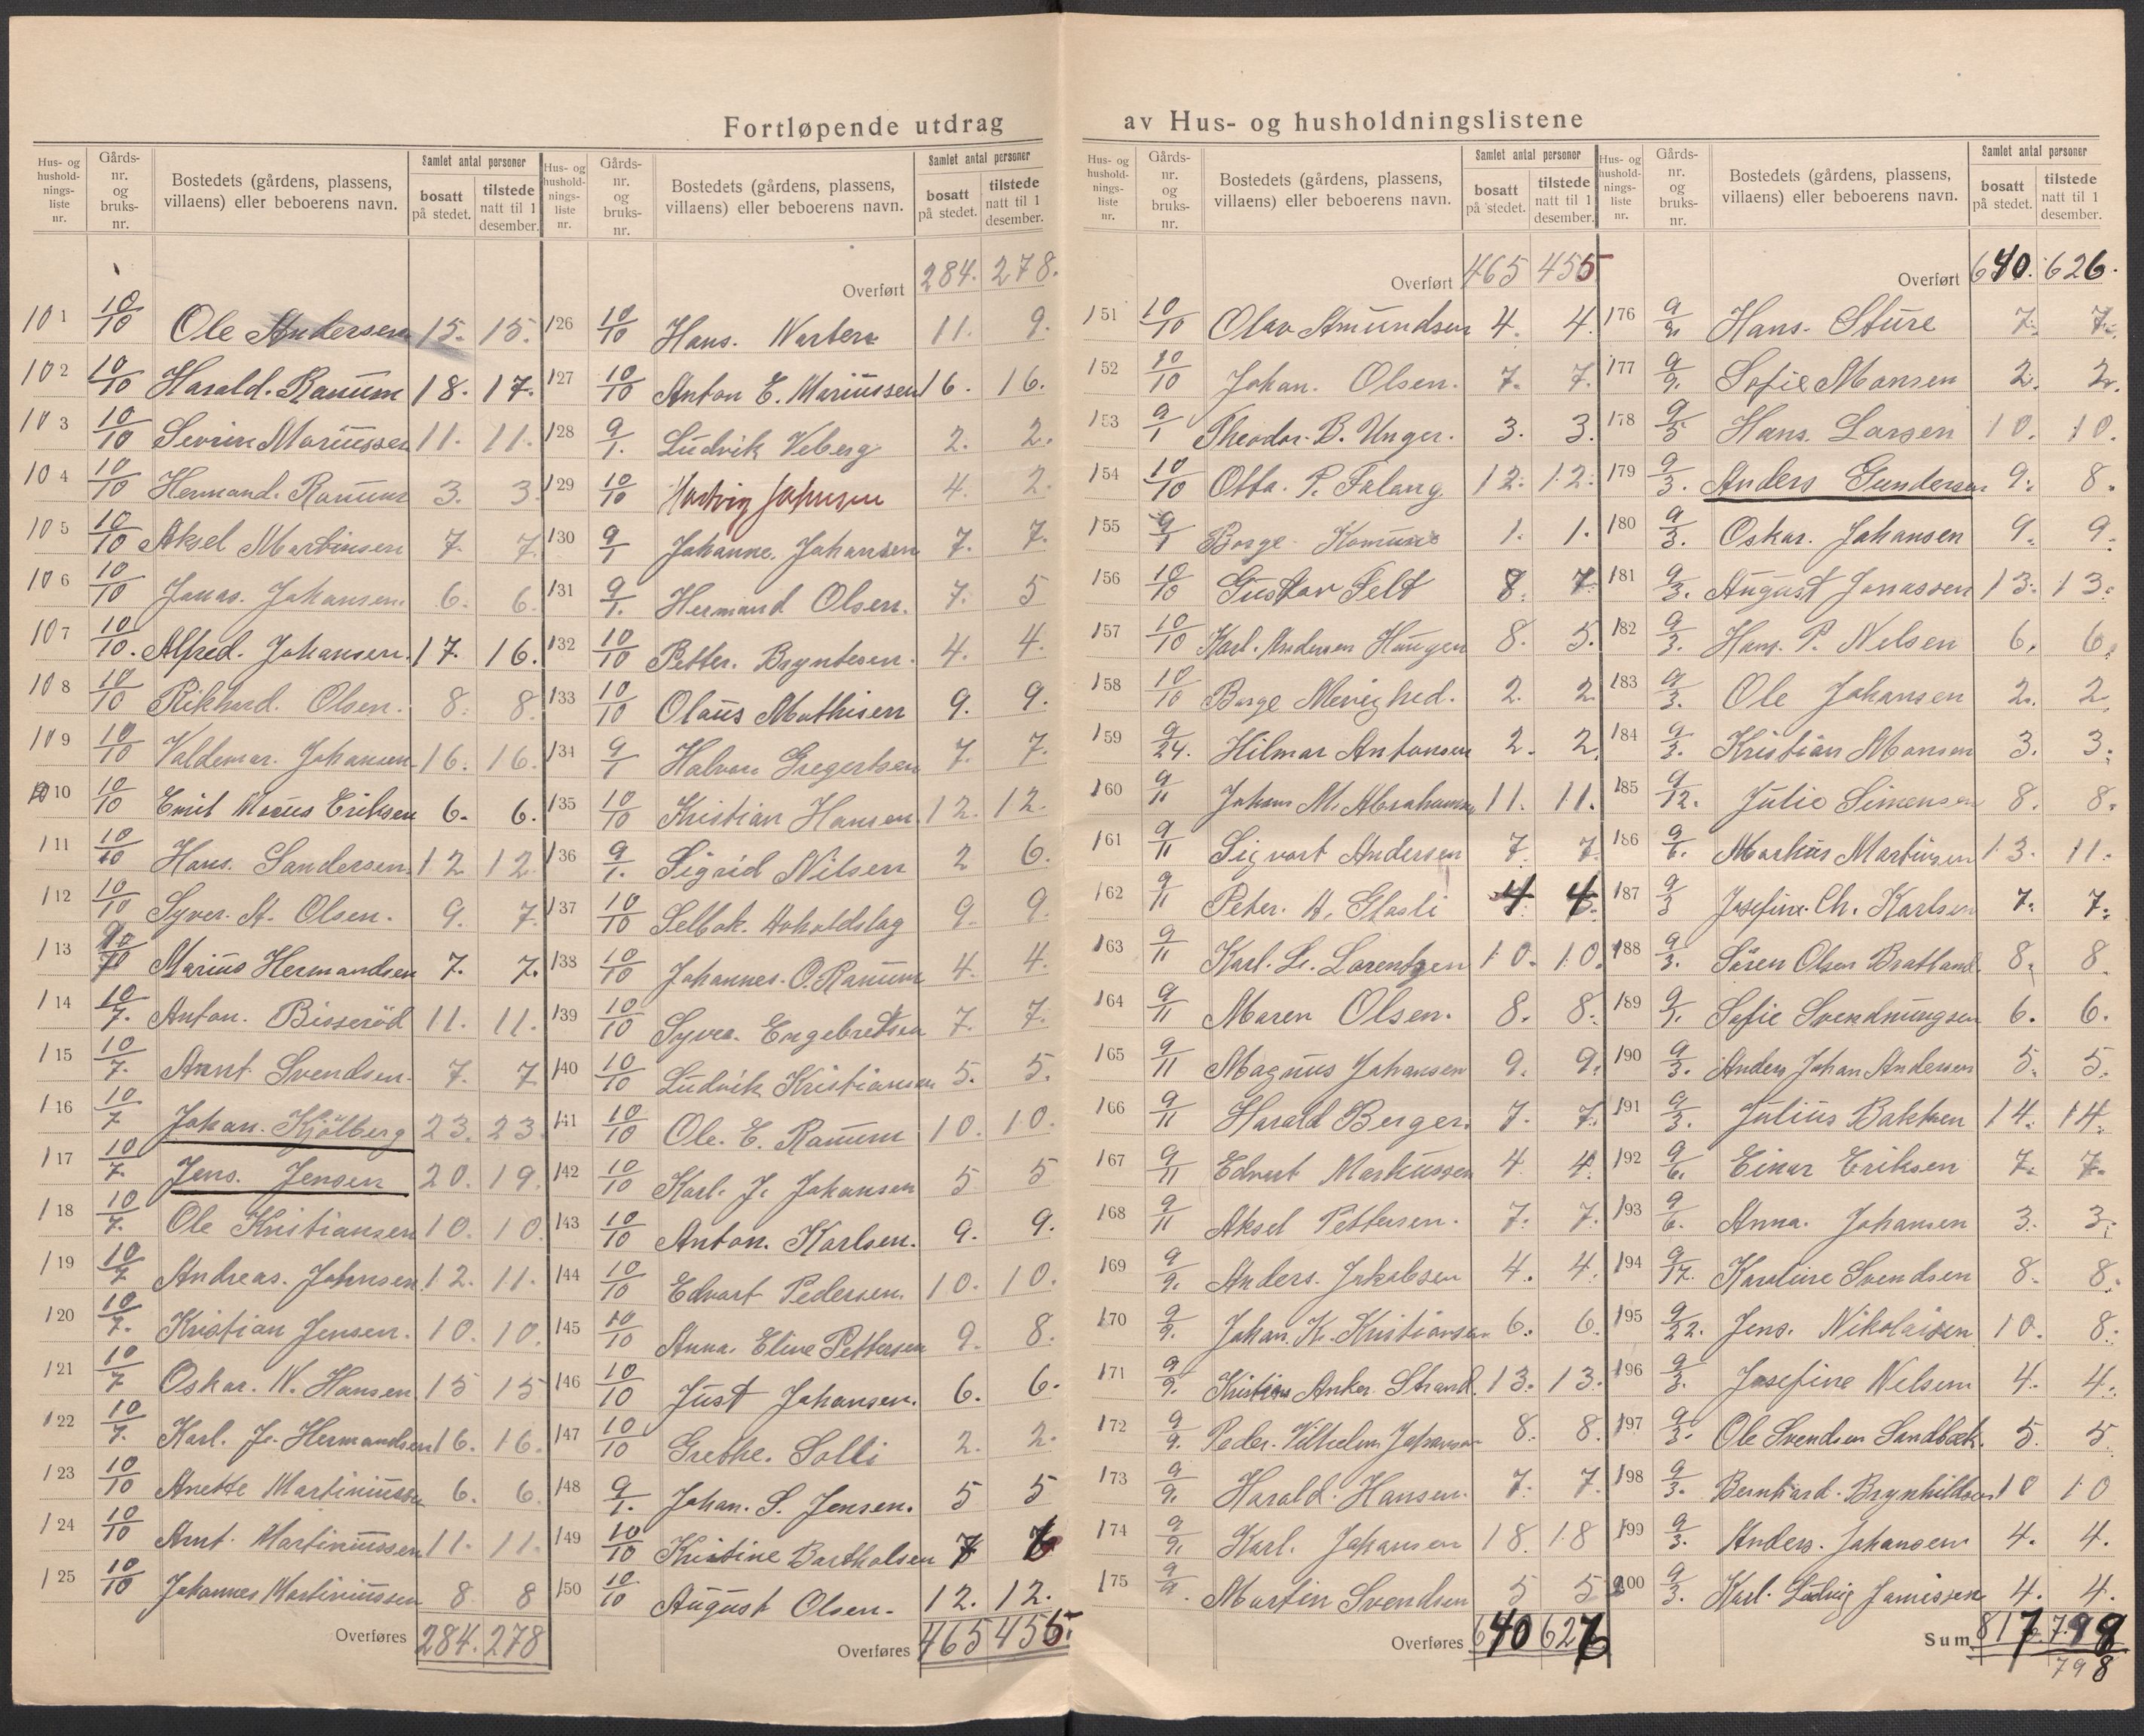 Fortløpende utdrag av Hus- og husholdningslistene
Hus- og husholdningsliste nr. Gårds-nr. og bruks-nr. Bostedets (gårdens, plassens, villaens) eller beboerens navn. Samlet antal personer bosatt på stedet. tilstede natt til 1 desember.
101 10/10 Ole Andersen 15. 15.
102 10/10 Harald. Ranum 18. 17.
103 10/10 Sevrin Mariussen 11. 11.
104 10/10 Hermand. Ranum 3. 3.
105 10/10 Aksel Martinsen 7. 7.
106 10/10 Jonas. Johansen. 6. 6.
107 10/10. Alfred. Johansen. 17. 16.
108 10/10 Rikhard. Olsen. 8. 8.
109 10/10 Valdemar. Johansen 16. 16.
110 10/10 Emil Marius Eriksen 6. 6.
111 10/10 Hans. Sandersen. 12 12.
112 10/10 Syver. A. Olsen. 9. 7.
113 Marius Hermandsen 7. 7.
114 10/7. Anton. Bisseröd 11. 11.
115 10/7. Arent Svendsen. 7. 7.
116 10/7 Johan. Kjölberg 23. 23.
117 10/7. Jens. Jensen 20. 19.
118 10/7. Ole Kristiansen 10. 10.
119 10/7 Andreas. Johnsen. 12. 11.
120 10/7. Kristian Jensen. 10. 10.
121 10/7 Oskar. W. Hansen 15 15
122 10/7. Karl. J. Hermandsen 16. 16.
123 10/10 Anette Martiniussen 6. 6.
124 10/10 Arnt. Martiniussen 11. 11.
125 10/10 Johannes Martiniussen 8 8
Overføres 284. 278
Hus- og husholdnings-liste nr. Gårds-nr. og bruks-nr. Bostedets (gårdens, plassens, villaens) eller beboerens navn. Samlet antal personer bosatt på stedet. tilstede natt til 1 desember.
Overført 284. 278.
126 10/10 Hans. 11. 9.
127 10/10 Anton E. Mariussen 16. 16.
128 9/1. Ludvik Veberg 2. 2.
129 10/10 Hartvig Johnsen 4. 2.
130 9/1 Johanne. Johansen 7. 7.
131 9/1. Hermand Olsen. 7. 5
132 10/10 Petter. Bryntesen. 4. 4.
133 10/10 Olaus Mathisen 9. 9.
134 9/1 Halvor Gregertsen 7. 7.
135 10/10 Kristian Hansen. 12. 12.
136 9/1. Sigrid Nilsen 2 6.
137 10/10 Selbak. Avholdslag 9. 9.
138 10/10 Johannes. O. Ranum 4. 4.
139 10/10 Syver. Engebretsen 7. 7.
140 10/10 Ludvik Kristiansen 5. 5.
141 10/10 Ole. E. Ranum 10. 10.
142 10/10 Karl. J. Johansen 5 5
143 10/10 Anton. Karlsen. 9. 9.
144 10/10 Edvart Pedersen. 10. 10.
145 10/10 Anna. Eline Pettersen 9. 8.
146 10/10 Just Johansen. 6. 6.
147 10/10 Grethe. Solli 2. 2.
148 9/1. Johan. S. Jensen. 5 5
149 10/10 Kristine Bartholsen 7
150 10/10 August Olsen. 12. 12.
Overføres 465 455.
Hus- og husholdnings-liste nr. Gårds-nr. og bruks-nr. Bostedets (gårdens, plassens, villaens) eller beboerens navn. Samlet antal personer bosatt på stedet. tilstede natt til 1 desember.
Overført 465 455
151 10/10 Olav Amundsen 4. 4.
152 10/10 Johan. Olsen. 7. 7.
153 9/1 Theodor. B. Unger. 3. 3.
154 10/10 Otto. P. Falang. 12. 12.
155 9/1 Borge Komune 1. 1.
156 10/10 Gustav Felt 8. 7.
157 10/10 Karl. Andersen Haugen 8. 5.
158 10/10 Borge Menighed. 2. 2
159 9/24. Hilmar Antonsen 2. 2
160 9/11 Johan M. Abrahamsen 11. 11.
161 9/11 Sigvart Andersen 7. 7.
162 9/11 Peter. A. Glosli 4. 4.
163 9/11 Karl. L. Lorentzen 10. 10.
164 9/11 Maren Olsen. 8. 8.
165 9/11 Magnus Johansen 9. 9.
166 9/11 Harald Berger. 7. 7.
167 9/11 Edvart Markussen 4 4.
168 9/11 Aksel Pettersen. 7. 7.
169 9/9. Anders. Jakobsen 4. 4.
170 9/9. Johan. K. Kristiansen 6. 6.
171 9/9. Kristian Anker. Strand. 13. 13.
172 9/9. Peder. Vilhelm Johansen 8. 8.
173 9/9. Harald. Hansen. 7. 7.
174 9/9. Karl. Johansen 18. 18
175 9/9. Martin Svendsen 5 5
Overføres 640 626
Hus- og husholdnings-liste nr. Gårds-nr. og bruks-nr. Bostedets (gårdens, plassens, villaens) eller beboerens navn. Samlet antal personer bosatt på stedet. tilstede natt til 1 desember.
Overført 640. 626.
176 9/9. Hans. Sture 7. 7.
177 9/9. Sofie Monsen 2. 2.
178 9/5 Hans. Larsen 10. 10.
179 9/3. Anders Gundersen 9. 8.
180 9/3. Oskar. Johansen 9. 9.
181 9/3. August Jonassen 13. 13.
182 9/3. Hans. P. Nelsen 6. 6.
183 9/3. Ole Johansen 2. 2.
184 9/3. Kristian Monsen 3. 3.
185 9/12. Julie Simensen 8. 8.
186 9/6. Markus Martinsen 13. 11.
187 9/3 Josefine. Ch. Karlsen 7. 7.
188 9/3. Sören Olsen Bratland. 8. 8.
189 9/9. Sofie Svendnungsen 6. 6.
190 9/3. Anders Johan Andersen 5. 5.
191 9/3. Julius Bakken 14. 14.
192 9/6. Einar Eriksen 7. 7.
193 9/6. Anna. Johansen 3. 3.
194 9/17. Karoline Svendsen 8. 8.
195 9/22. Jens. Nikolaisen 10. 8.
196 9/3. Josefine Nelsen 4. 4.
197 9/3. Ole Svendsen Sandbæk. 5. 5.
198 9/3. Bernhard. Brynhildsen 10 10
199 9/3. Anders. Johansen 4. 4.
200 9/3. Karl. Ludvig Jonissen 4. 4.
Sum 817. 798
798